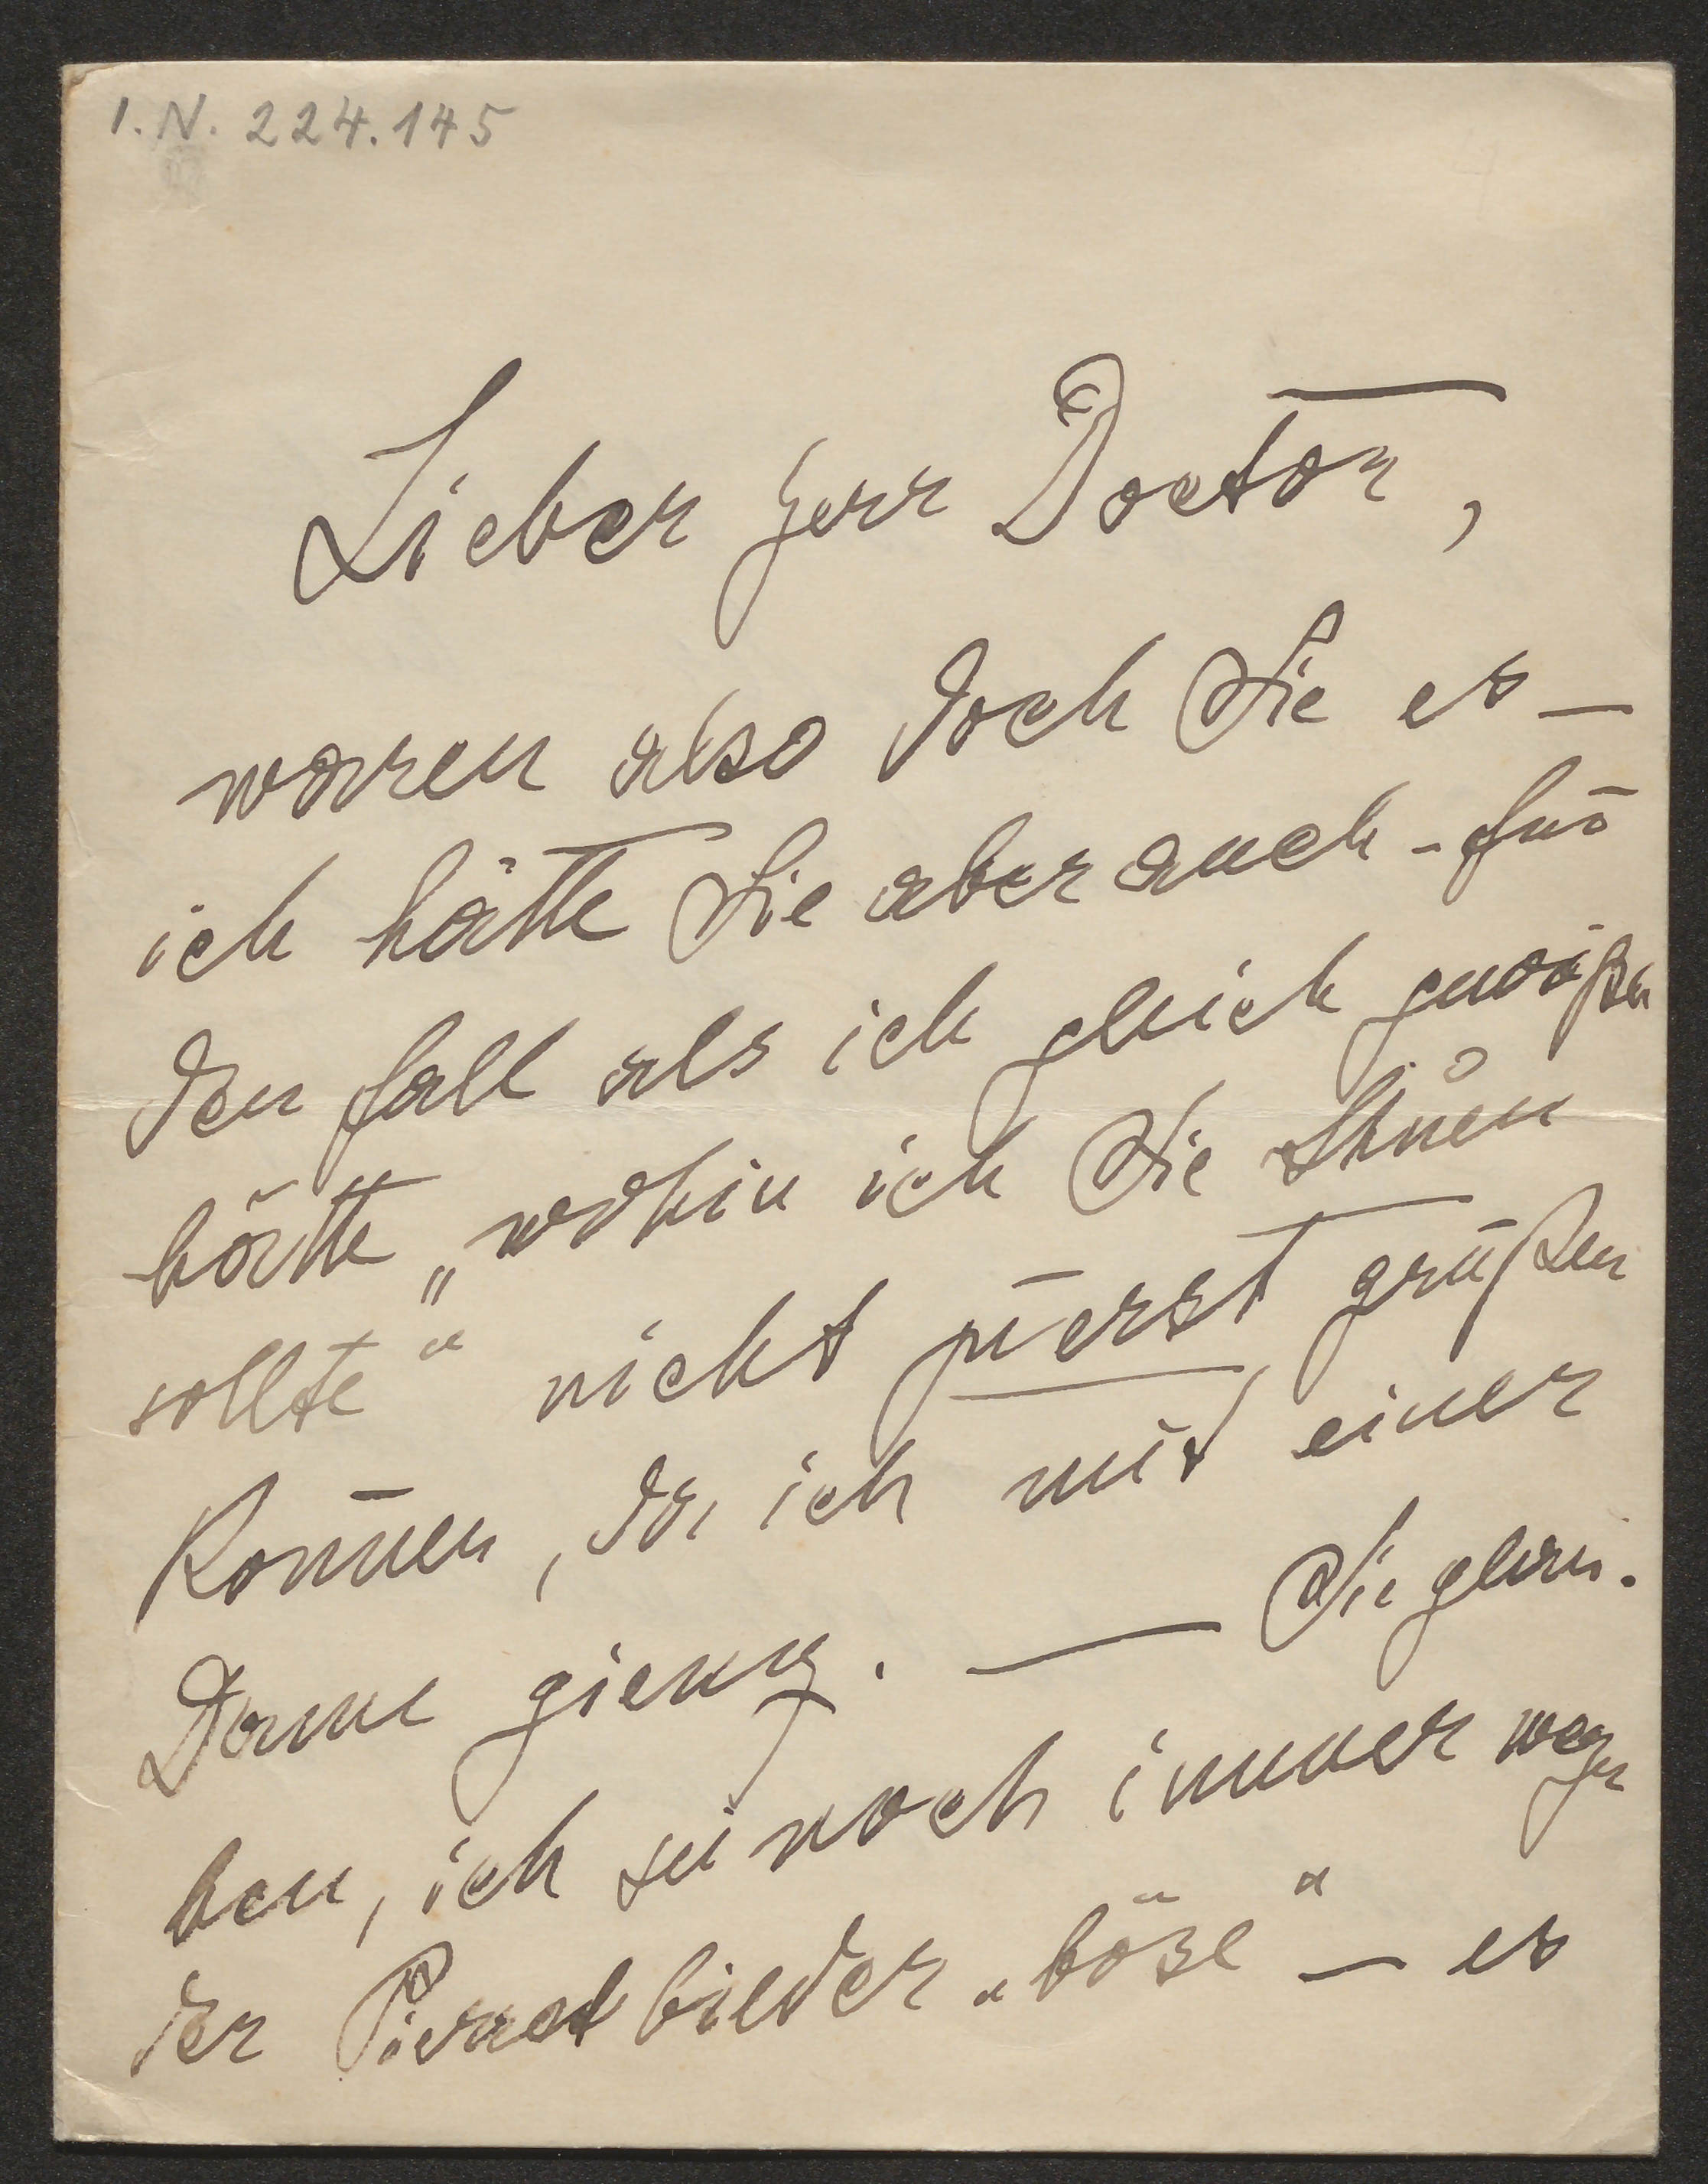 I.N. 224.145
Lieber Herr Doctor,
waren also doch Sie es –
ich hätte Sie aber auch – für
den Fall als ich gleich gewußt
hätte „wohin ich Sie
sollte“ nicht zuerst grüßen
können, da ich mit einer
Dame gieng. — Sie glau-
ben, ich sei noch immer wegen
der Pierrotbilder „böse“ – es